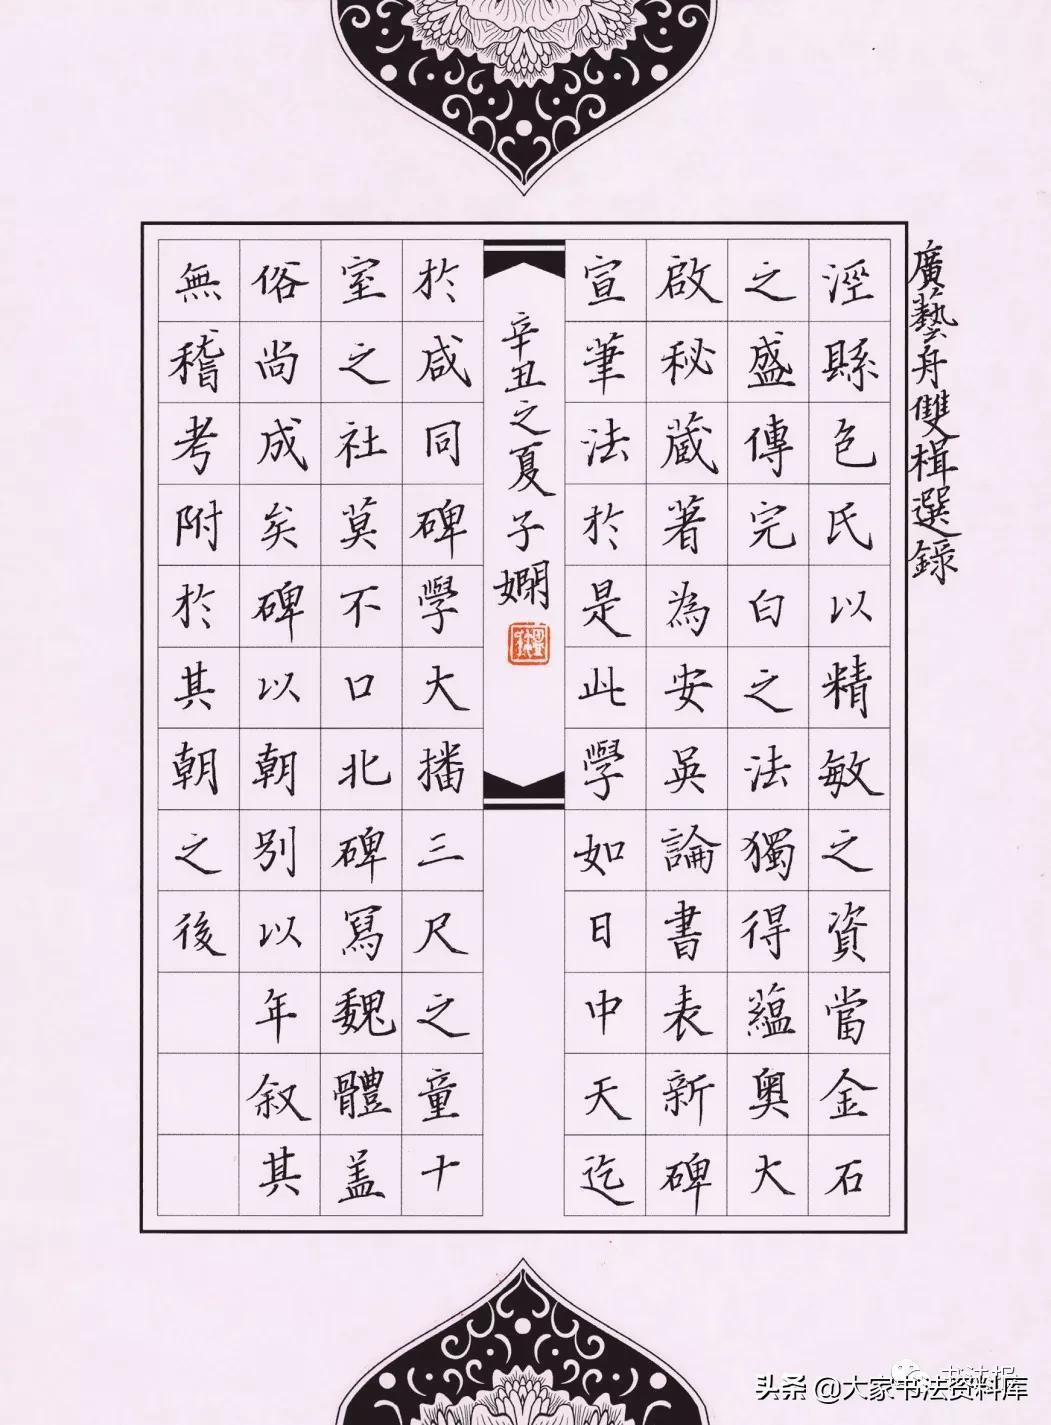 廣藝舟雙楫選錄
涇縣包氏以精敏之資當金石
之盛傳完白之法獨得蘊奧大
啟秘藏著為安吳論書表新碑
宣筆法於是此學如日中天迄
辛丑之夏子嫻
於咸同碑學大播三尺之童十
室之社莫不口北碑寫魏體蓋
俗尚成矣碑以朝別以年叙其
無稽考附於其朝之後
头条 @大家书法资料库
书法报